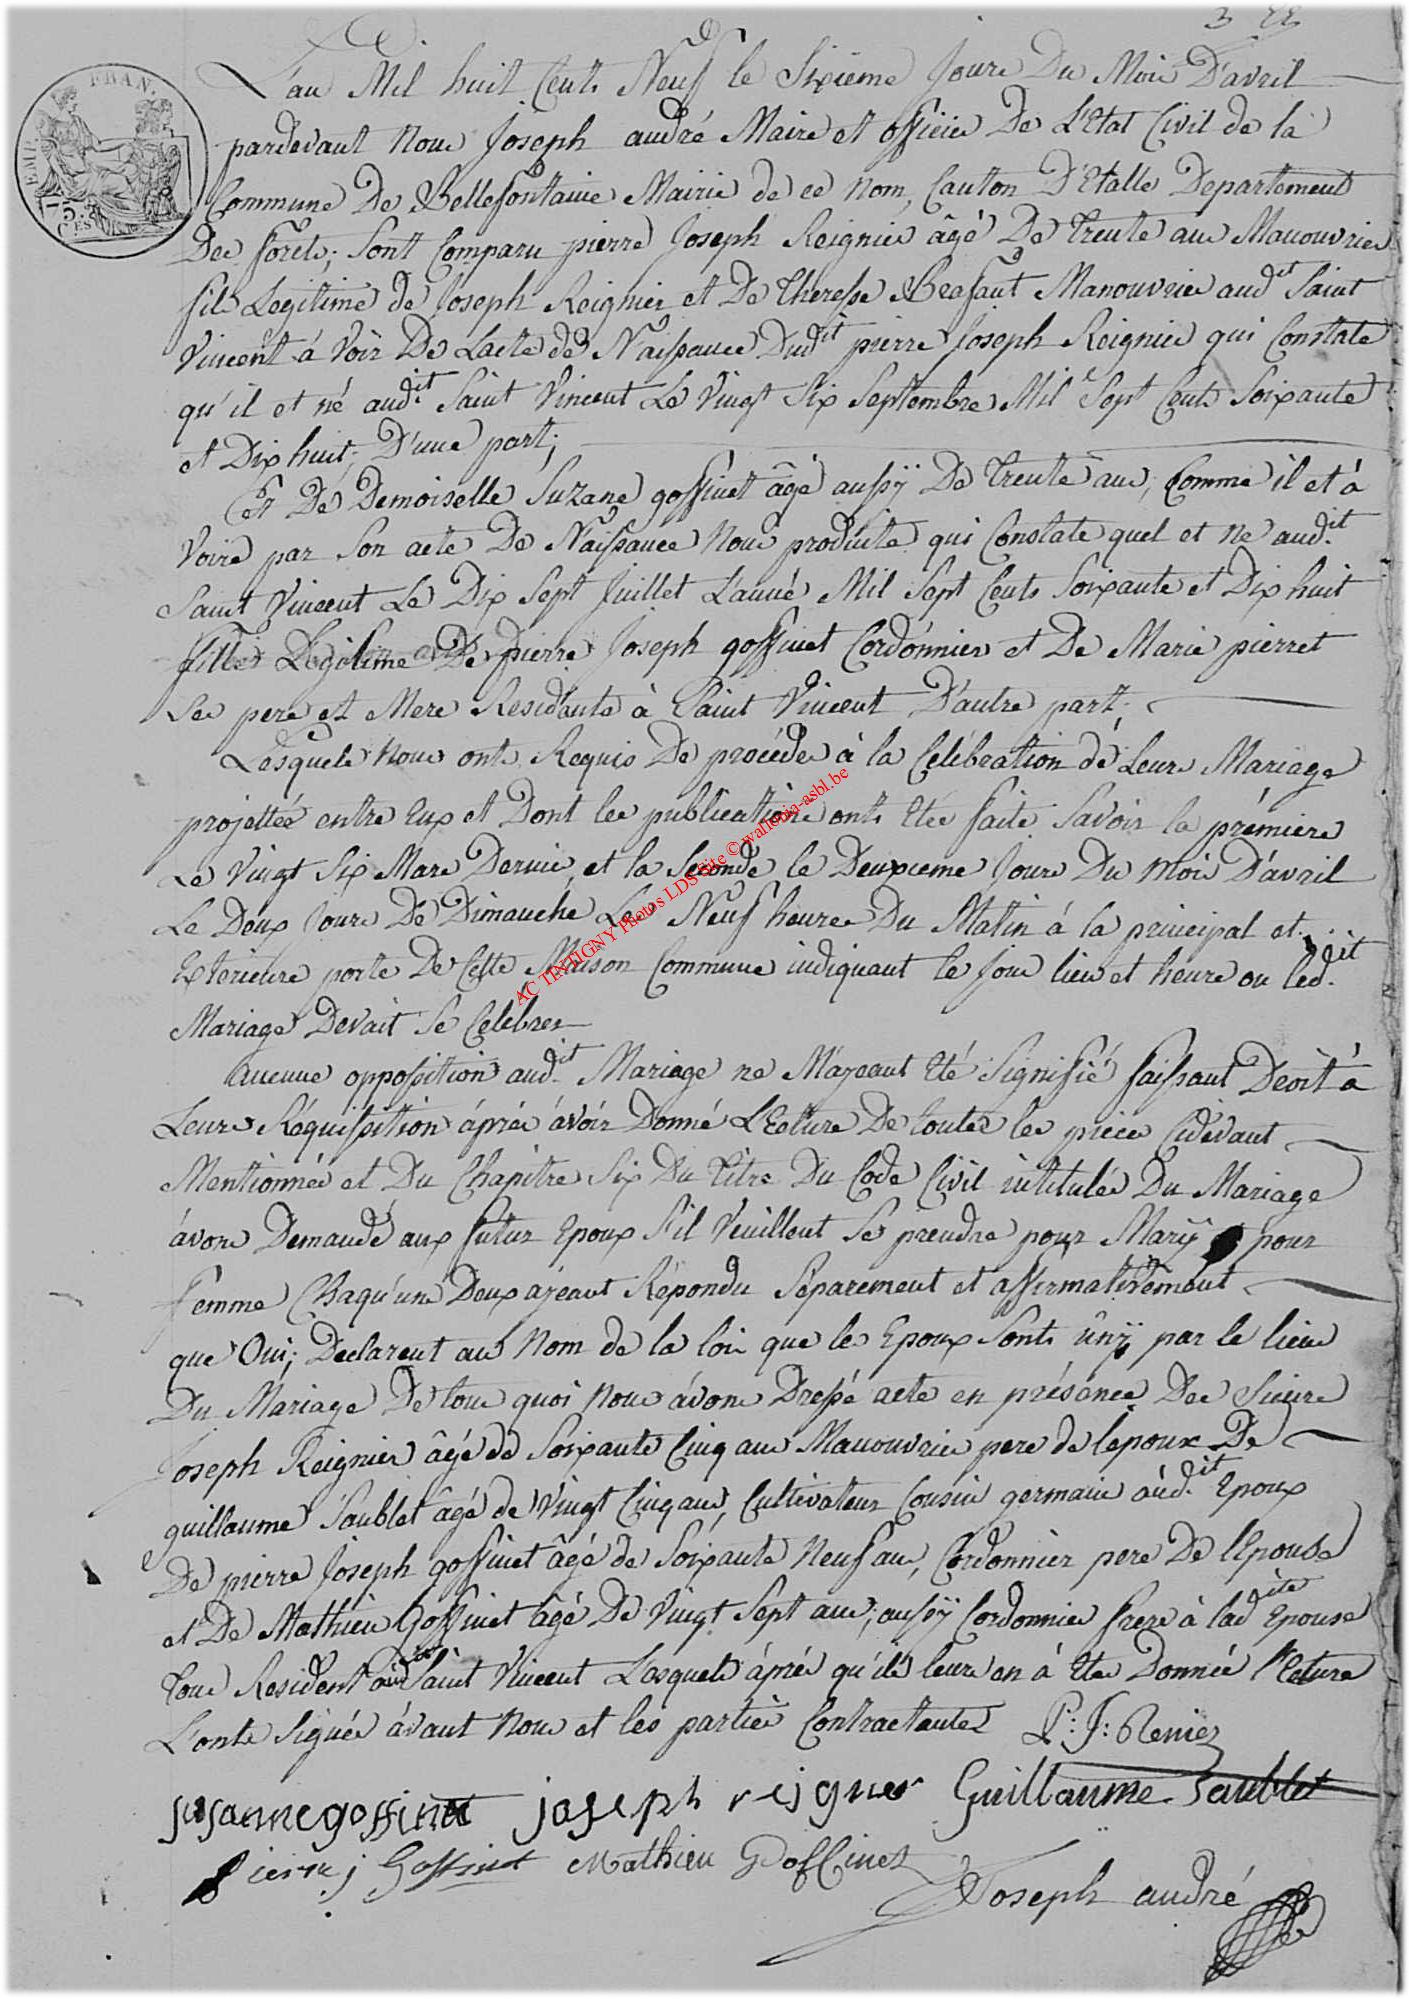 FRAN.
EMP.
75.
C.ES
L'an Mil huit Cents Neuf le Sixieme Jours Du Mois D'avril
pardevant Nous Joseph andré Maire et officier De L'Etat Civil de la
Commune De Bellefontaine Mairie de ce Nom, Canton D'Etalle Departement
Des forets; Sont Comparu pierre Joseph Reignier âgé De Trente ans Manouvrier
fils Legitime de Joseph Reignier et De Theresse Brasfaut Manouvrier aud.it Saint
Vincent á Voir De Lacte de Naissance Dud.it pierre Joseph Reignier qui Constate
qu'il et né aud.it Saint Vincent Le Vingt Six Septembre Mil Sept Cents Soixante
et Dix huit; D'une part;
Et De Demoiselle Suzane goffinet âgé aussÿ De Trente ans; Comme il et á
Voire par Son acte De Naissance Nous produite qui Constate quel et ne aud.it
Saint Vincent Le Dix Sept Juillet L'anné Mil Sept Cents Soixante et Dix huit
fille Legitime De pierre Joseph goffinet Cordonnier et De Marie pierret
Ses pere et Mere Residants à Saint Vincent D'autre part;
Lesquels Nous onts Requis De procéder à la Celébration dé Leurs Mariage
projettée entre Eux et Dont les publications onts Etée faite Savoir la prémiere
Le Vingt Six Mars Dernier et la Seconde le Deuxieme Jours Du Mois D'avril
Le Deux Jours De Dimanche Les Neuf heures Du Matin á la principal et
Exterieure porte De Cette Maison Commune indiquant le Jour lieu et heure ou led.it
Mariage Devait Se Celebrer
Aucune oppossition aud.it Mariage ne M'ayeant Eté Signifié faissant Droit á
Leurs Réquissition áprés ávoir Donné L'Ecture De toutes les pieces Cidevant
Mentionnés et Du Chapitre Six Du Titre Du Code Civil intitulés Du Mariage
ávons Demandé aux futur Epoux S'il Veuillent Se prendre pour Marÿ pour
Femme Chaqu'un Deux ayeant Répondu Séparement et affirmativement
que Oui; Declarent au Nom de la loi que les Epoux Sonts ûnÿ par le liens
Du Mariage De tous quoi Nous ávons Dressé acte en présence Des Sieurs
Joseph Reignier âgé de Soixante Cinq ans Manouvrier pere de lépoux De
guillaume Saublet âgé de Vingt Cinq ans, Cultivateur Cousin germain aúd.it Epoux
De pierre Joseph goffinet âgé de Soixante Neuf ans, Cordonnier pere De l'Epouse
et De Mathieu Goffinet âgé De Vingt Sept ans; aussÿ Cordonnier frere à lad.ite Epouse
Tous Resident aud.it Saint Vincent Lesquels áprés qu'ils leurs en á Ete Donnée l'Ecture
L'onts Signés ávant Nous et les parties Contractantes P: J: Renier
susanne goffinet joseph reigner Guillaume Saublet
pierre j Goffinet Mathieu Goffinet
Joseph andré
AC TINTIGNY Photos LDS Site © wallonia-asbl.be